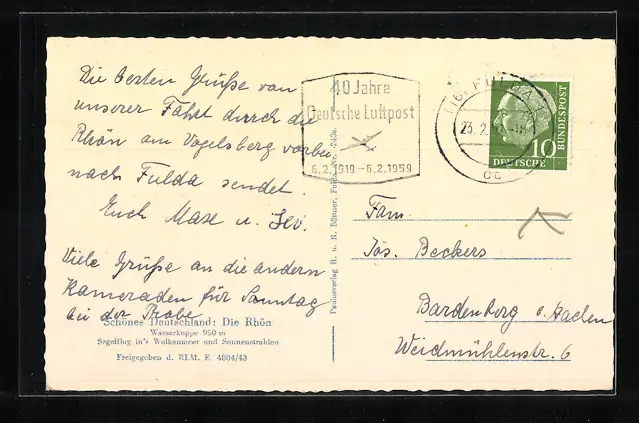 Die besten Grüße von
unserer Fahrt durch die
Rhön am Vogelsberg vorbei
nach Fulda sendet
Euch Maxe u.
Viele Grüße an die andern
Kameraden für Sonntag
bei der Probe
Schönes Deutschland: Die Rhön
Wasserkuppe 950 m
Segelflug in's Wolkenmeer und Sonnenstrahlen
Freigegeben d. RLM. E. 4804/43
Paulusverlag R. u. R. Bönner, Fulda Nr.
40 Jahre
Deutsche Luftpost
6.2.1919-6.2.1959
(16) FULDA 1
23.2.
cc
10
DEUTSCHE
BUNDESPOST
Fam.
Jos. Beckers
Bardenberg b. Aachen
Weidmühlenstr. 6